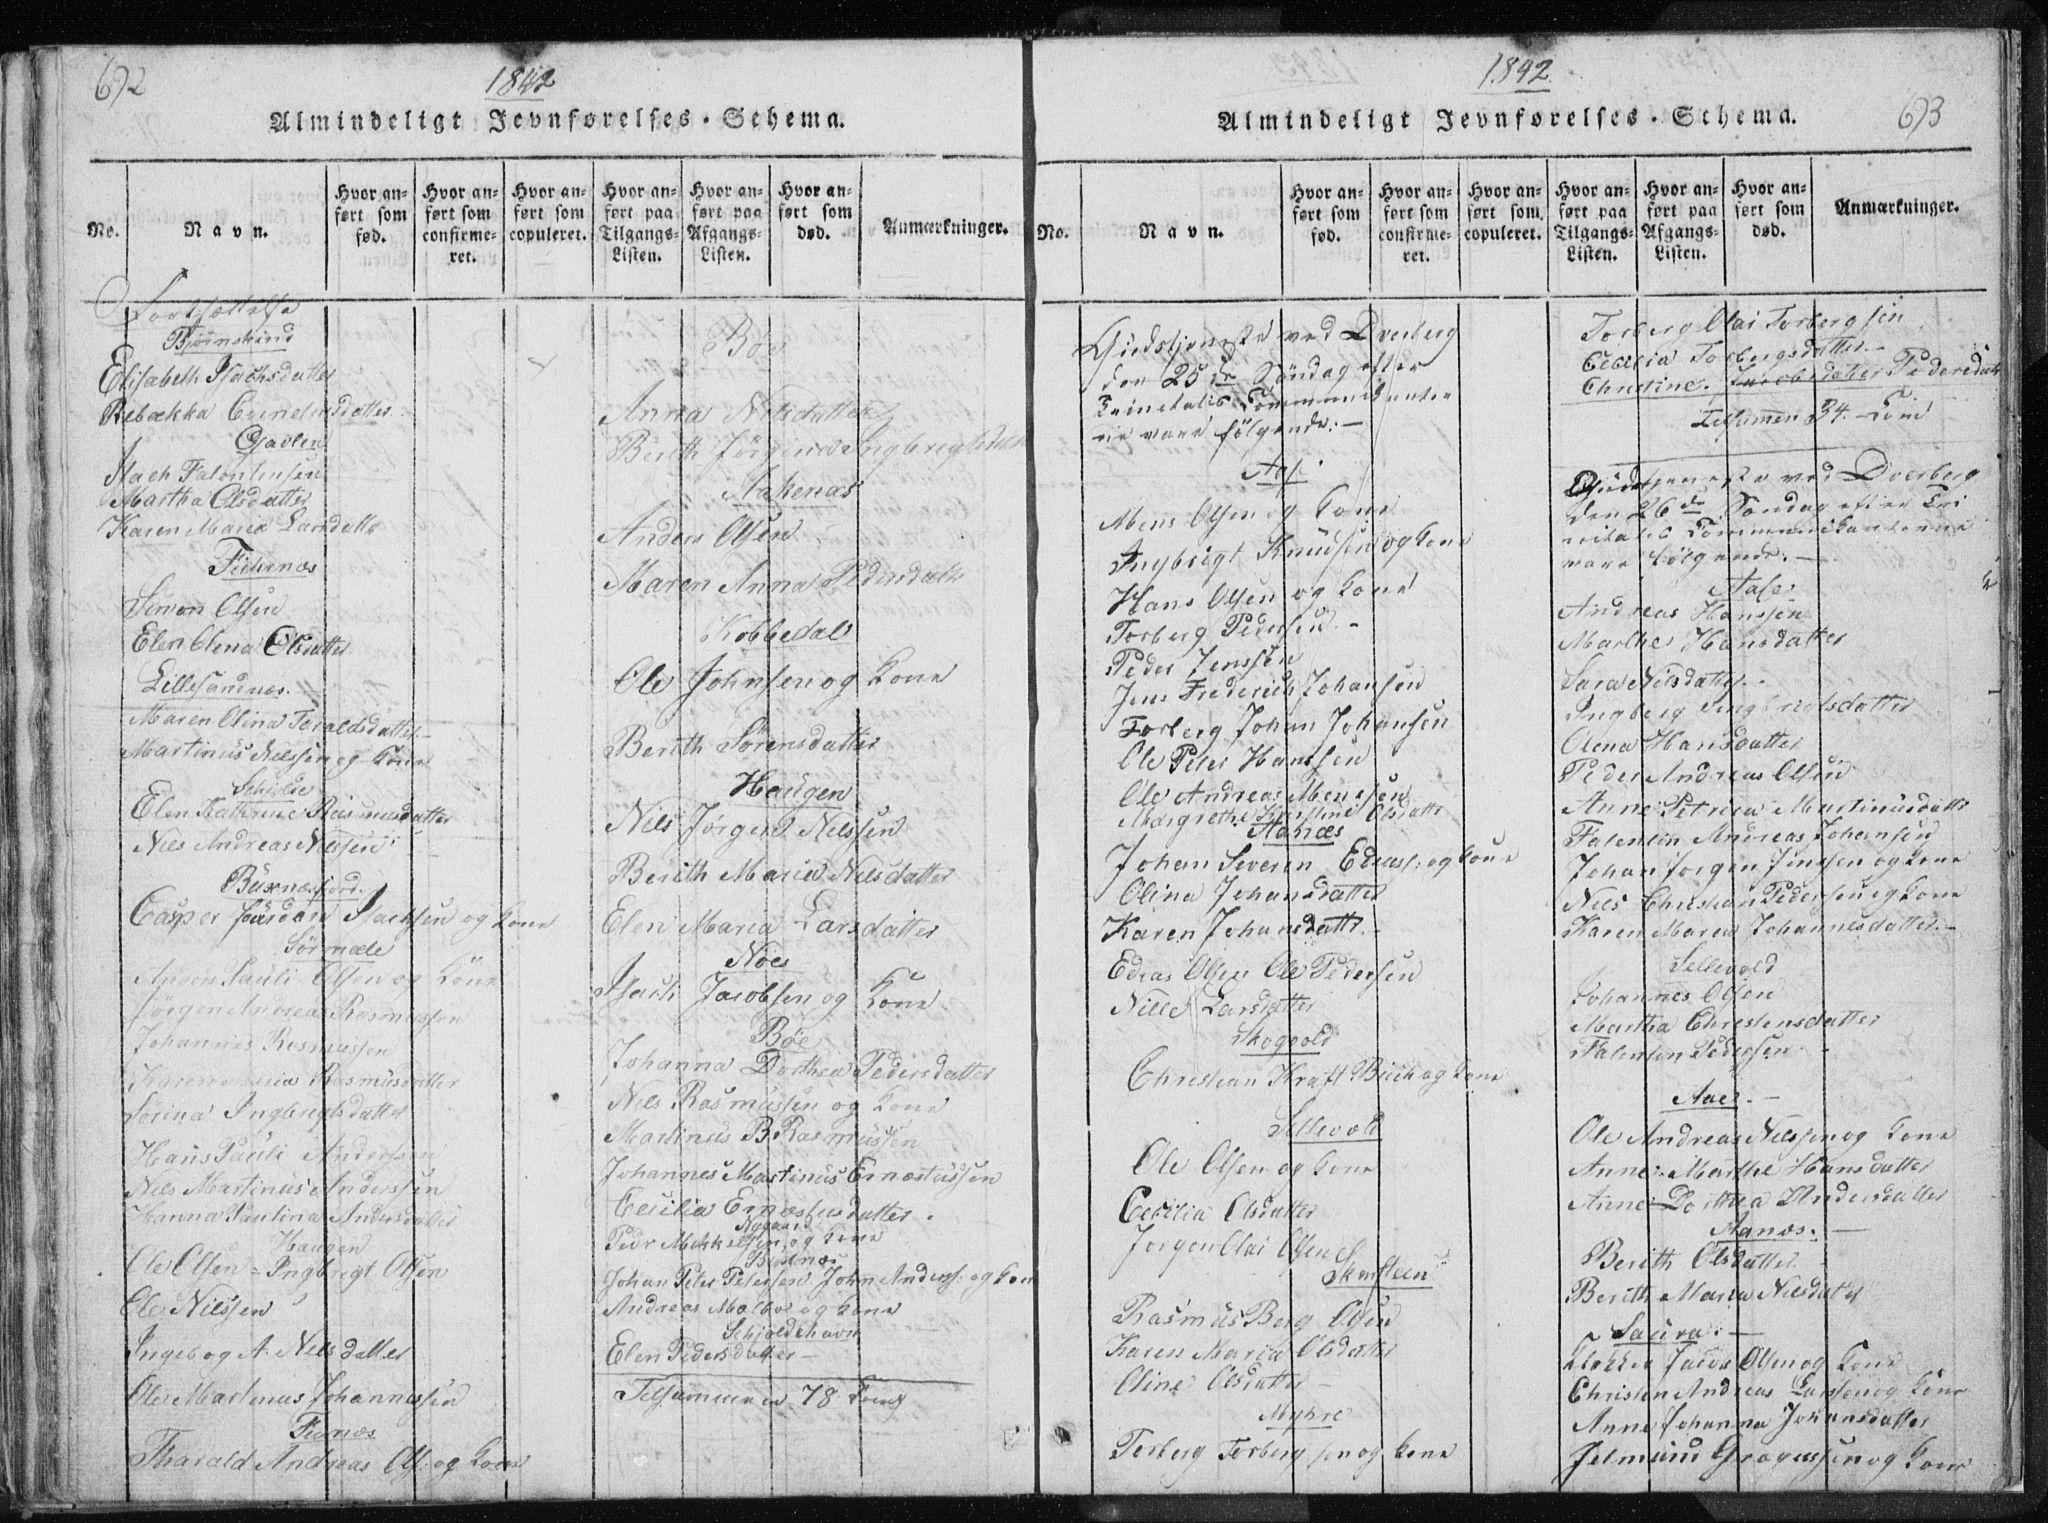 692
1842
Almindeligt Jevnførelses-Schema.
No.
Navn.
Hvor anført som fød.
Hvor anført som confirmeret.
Hvor anført som copuleret.
Hvor anført paa Tilgangs-Listen.
Hvor anført paa Afgangs-Listen.
Hvor anført som død.
Anmærkninger.
Fortsættelse
Bjørnskind
Elisabeth Isachsdatter
Rebækka Corneliusdatter
Gavlen
Isach Falentinsen
Martha Olsdatter
Karen Maria Larsdattr
Fiskenæs
Simon Olsen
Elen Elena Olsdatter
Lillesandnæs.
Maren Olina Toraldsdatter
Martinus Nilssen og Kone
Elen Kathrine Rasmusdatter
Nils Andreas Nilssen
Buxnæsfjord.
Casper Jürdan Isachsen og Kone
Sørmæle
Anders Pauli Olsen og Kone
Jørgen Andreas Rasmussen
Johannes Rasmussen
Karen Maria Rasmusdatter
Sorina Ingbrigtsdatter
Hans Pauli Anderssen
Nils Martinus Anderssen
Hanna Paulina Andersdatter
Haugen
Ole Olsen - Ingbregt Olsen
Ole Nilssen
Ingebog A. Nilsdatter
Ole Martinus Johannessen
Finnæs
Tharald Andreas Ols: og Kone
Böe
Anna Nilsdatter
Berith Jörgina Ingbrigtsdatt
Aakenæs
Anders Olsen
Maren Anna Pedersdattr
Kobbedal
Ole Johnsen og Kone
Berith Sörensdatter
Haugen
Nils Jörgen Nilssen
Berith Maria Nilsdatter
Elen Maria Larsdatter
Nöes
Pauli Jacobsen og Kone
Böe
Johanna Dorthea Pedersdatter
Nils Rasmussen og Kone
Martinus B. Rasmüssen
Johannes Martinus Ernæstussen
Cecilia Ernæstusdatter.
Nygaard
Pedr Mikkelsen og Kone
Johan Peter Petersen John Anders: og Kon
Andreas Molbo og Kone
Schjoldehavn
Elen Pedersdatter
Tilsammen 78 Com
1842
Almindeligt Jevnførelses-Schema.
693
No.
Navn.
Hvor anført som fød.
Hvor anført som confirmeret.
Hvor anført som copuleret.
Hvor anført paa Tilgangs-Listen.
Hvor anført paa Afgangs-Listen.
Hvor anført som død.
Anmærkninger.
Gudstjeneste ved Dverberg
den 25de Söndag efter
Trinitatis Communikanter
ne vare følgende:-
Aas.
Mens Olsen og Kone
Ingbrigt Knudsen og Kone
Hans Olsen og Kone
Torberg Pedersen
Peder Jenssen
Jens Frederich Johansen
Torberg Johan Johansen
Ole Peter Hanssen
Ole Andreas Monssen
Margrethe Kirstine Olsdattr
Aanæs
Johan Severin Edeas: og Kone
Olina Johansdatter
Karen Johansdattr
Edeas Olsen Ole Pedersen
Nille Larsdatter
Skogvold
Christian Kraft Buch og Kone
Sellevold
Ole Olsen og Kone
Cecilia Olsdatter
Jørgen Olai Olsen
Skarsteen
Rasmus Berg Olsen
Karen Maria Olsdatter
Oline Olsdatter
Myhre
Torberg Torbergsen og Kone
Torberg Olai Torbergsen
Cecelia Torbergsdatter
Christine Jacobsdatter Pedersdatt
Tilsamen 34. Com
Gudstjeneste ved Dverberg
den 26de Söndag efter Tri
nitatis Communikanterne
vare følgende:-
Aase
Andreas Hanssen
Marthe Hansdatter
Sara Nilsdatter
Ingberg Ingbrigtsdatter
Olena Hansdatter
Peder Andreas Olsen
Anne Petrea Martinusdattr
Falentin Andreas Johansen
Johan Jörgen Jenssen og Kone
Nils Christian Pedersen og Kone
Karen Maria Johannesdatter.-
Sellevold
Johannes Olsen
Martha Christensdatter
Falentin Pedersen
Aaes.-
Ole Andreas Nilssen og Kone
Anne Marthe Hansdatter
Anne Dorthea Andersdatter
Aanæs.-
Berith Olsdatter
Berith Maria Nilsdatter
Saura.-
Klokker Jacob Olsen og Kone
Christen Andreas Larssen og Kone
Anne Johanna Johansdatter
Jelmund Gregussen og Kone